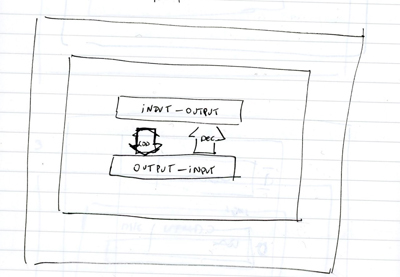 INPUT - OUTPUT
COD
DEC
OUTPUT - INPUT